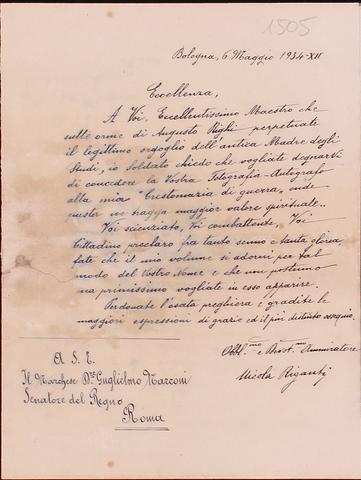 1505
Bologna, 6 Maggio 1934-XII
Eccellenza,
A Voi, Eccellentissimo Maestro che
sulle orme di Augusto Righi perpetuate
il legittimo orgoglio dell'antica Madre degli
Studi, io soldato chiedo che vogliate degnarvi
di concedere la Vostra Fotografia-Autografo
alla mia "Crestomazia di guerra", onde
questa ne tragga maggior valore spirituale..
Voi scienziato, Voi combattente, Voi
Cittadino preclaro fra tanto senno e tanta gloria
fate che il mio volume si adorni per tal
modo del Vostro Nome e che un postumo
ma primissimo vogliate in esso apparire.
Perdonate l'osata preghiera e gradite le
maggiori espressioni di grazie ed il più distinto ossequio.
Obbl.mo e Devot.mo Ammiratore
Nicola Riganti
A S. E.
Il Marchese Dr. Guglielmo Marconi
Senatore del Regno
Roma